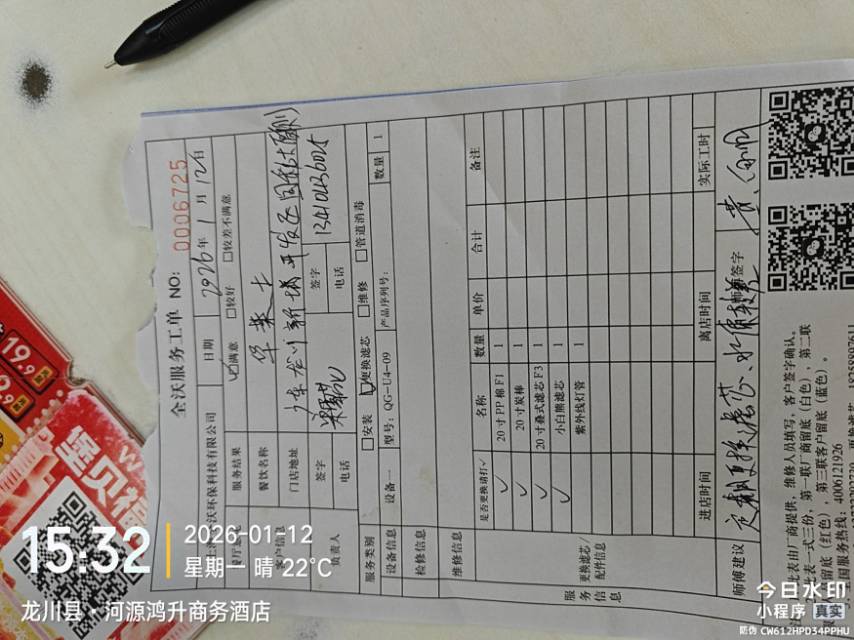 全沃服务工单 NO: 0006725
沃环保科技有限公司 日期 2026年1月12日
服务结果 ☑满意 □较好 □较差不满意
餐饮名称 华莱士
门店地址
签字 签字
电话 电话
负责人
服务类别 □安装 ☑更换滤芯 □维修 □管道消毒
设备信息 设备一 型号: QG-U4-09 产品序列号: 数量 1
检修信息
维修信息
服务信息
更换滤芯/配件信息
是否更换请打✓ 名称 数量 单价 合计 备注
✓ 20寸PP棉F1 1
✓ 20寸炭棒 1
✓ 20寸叠式滤芯F3 1
✓ 小白熊滤芯 1
紫外线灯管 1
进店时间 离店时间 实际工时
师傅建议 定期更换滤芯、水质较差 师傅签字
此表由厂商提供，维修人员填写，客户签字确认。
此表一式三份，第一联厂商留底（白色），第二联
留底（红色），第三联客户留底（蓝色）。
国服务热线: 4006121926
19.9
9.9
堡贝福
15:32
2026-01-12
星期一 晴 22℃
龙川县·河源鸿升商务酒店
今日水印
小程序 真实
防伪 CW612HPD34PPHU